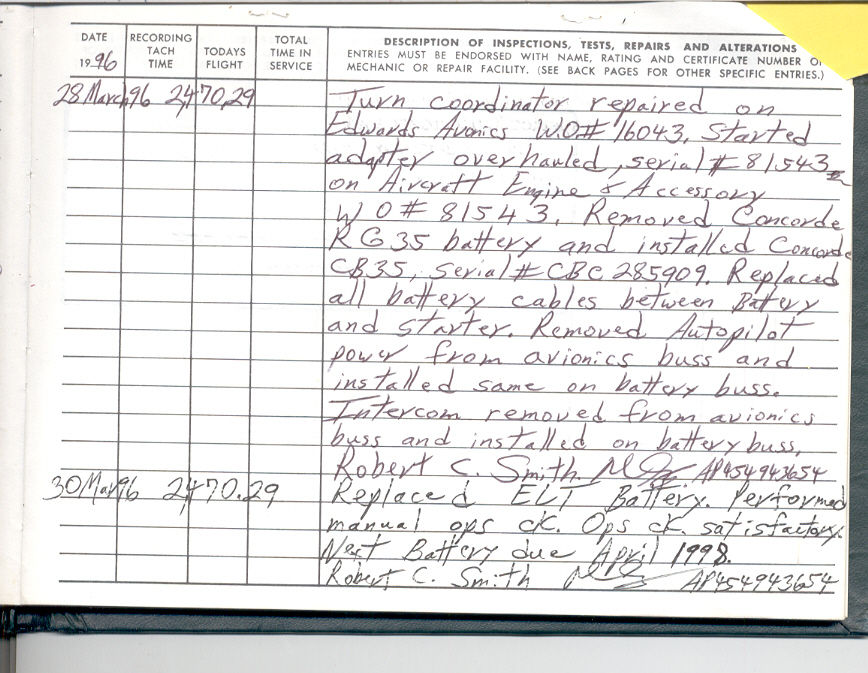 DATE
1996
RECORDING
TACH
TIME
TODAYS
FLIGHT
TOTAL
TIME IN
SERVICE
DESCRIPTION OF INSPECTIONS, TESTS, REPAIRS AND ALTERATIONS
ENTRIES MUST BE ENDORSED WITH NAME, RATING AND CERTIFICATE NUMBER O
MECHANIC OR REPAIR FACILITY. (SEE BACK PAGES FOR OTHER SPECIFIC ENTRIES.)
28 March 96 2470.29 Turn coordinator repaired on
Edwards Avonics WO# 16043. Started
adapter overhauled, serial # 81543
on Aircraft Engine & Accessory
WO# 81543. Removed Concorde
RG35 battery and installed Concorde
CB35, serial # CBC 285909. Replaced
all battery cables between Battery
and starter. Removed Autopilot
power from avionics buss and
installed same on battery buss.
Intercom removed from avionics
buss and installed on battery buss,
Robert C. Smith AP454943654
30 Mar 96 2470.29 Replaced ELT Battery. Performed
manual ops ck. Ops ck. satisfactory.
Next Battery due April 1998.
Robert C. Smith AP454943654